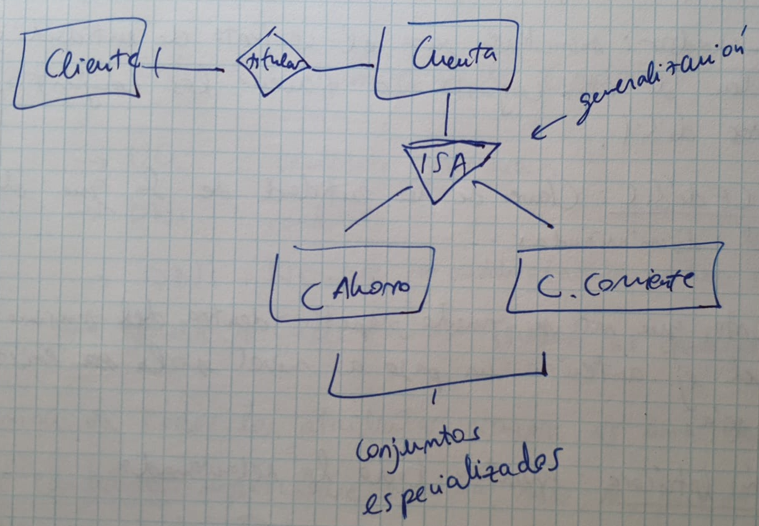 Cliente
titular
Cuenta
generalización
ISA
C Ahorro
C. Corriente
conjuntos
especializados